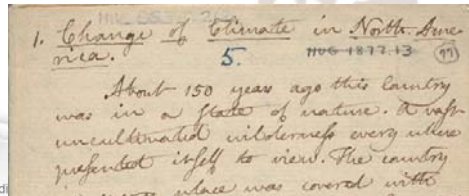 1. Change of Climate in North Ame-
rica.
5.
HUG 1877.13
About 150 years ago this Country
was in a State of nature. A vast
uncultivated wilderness every where
presented itself to view. The country
place was covered with